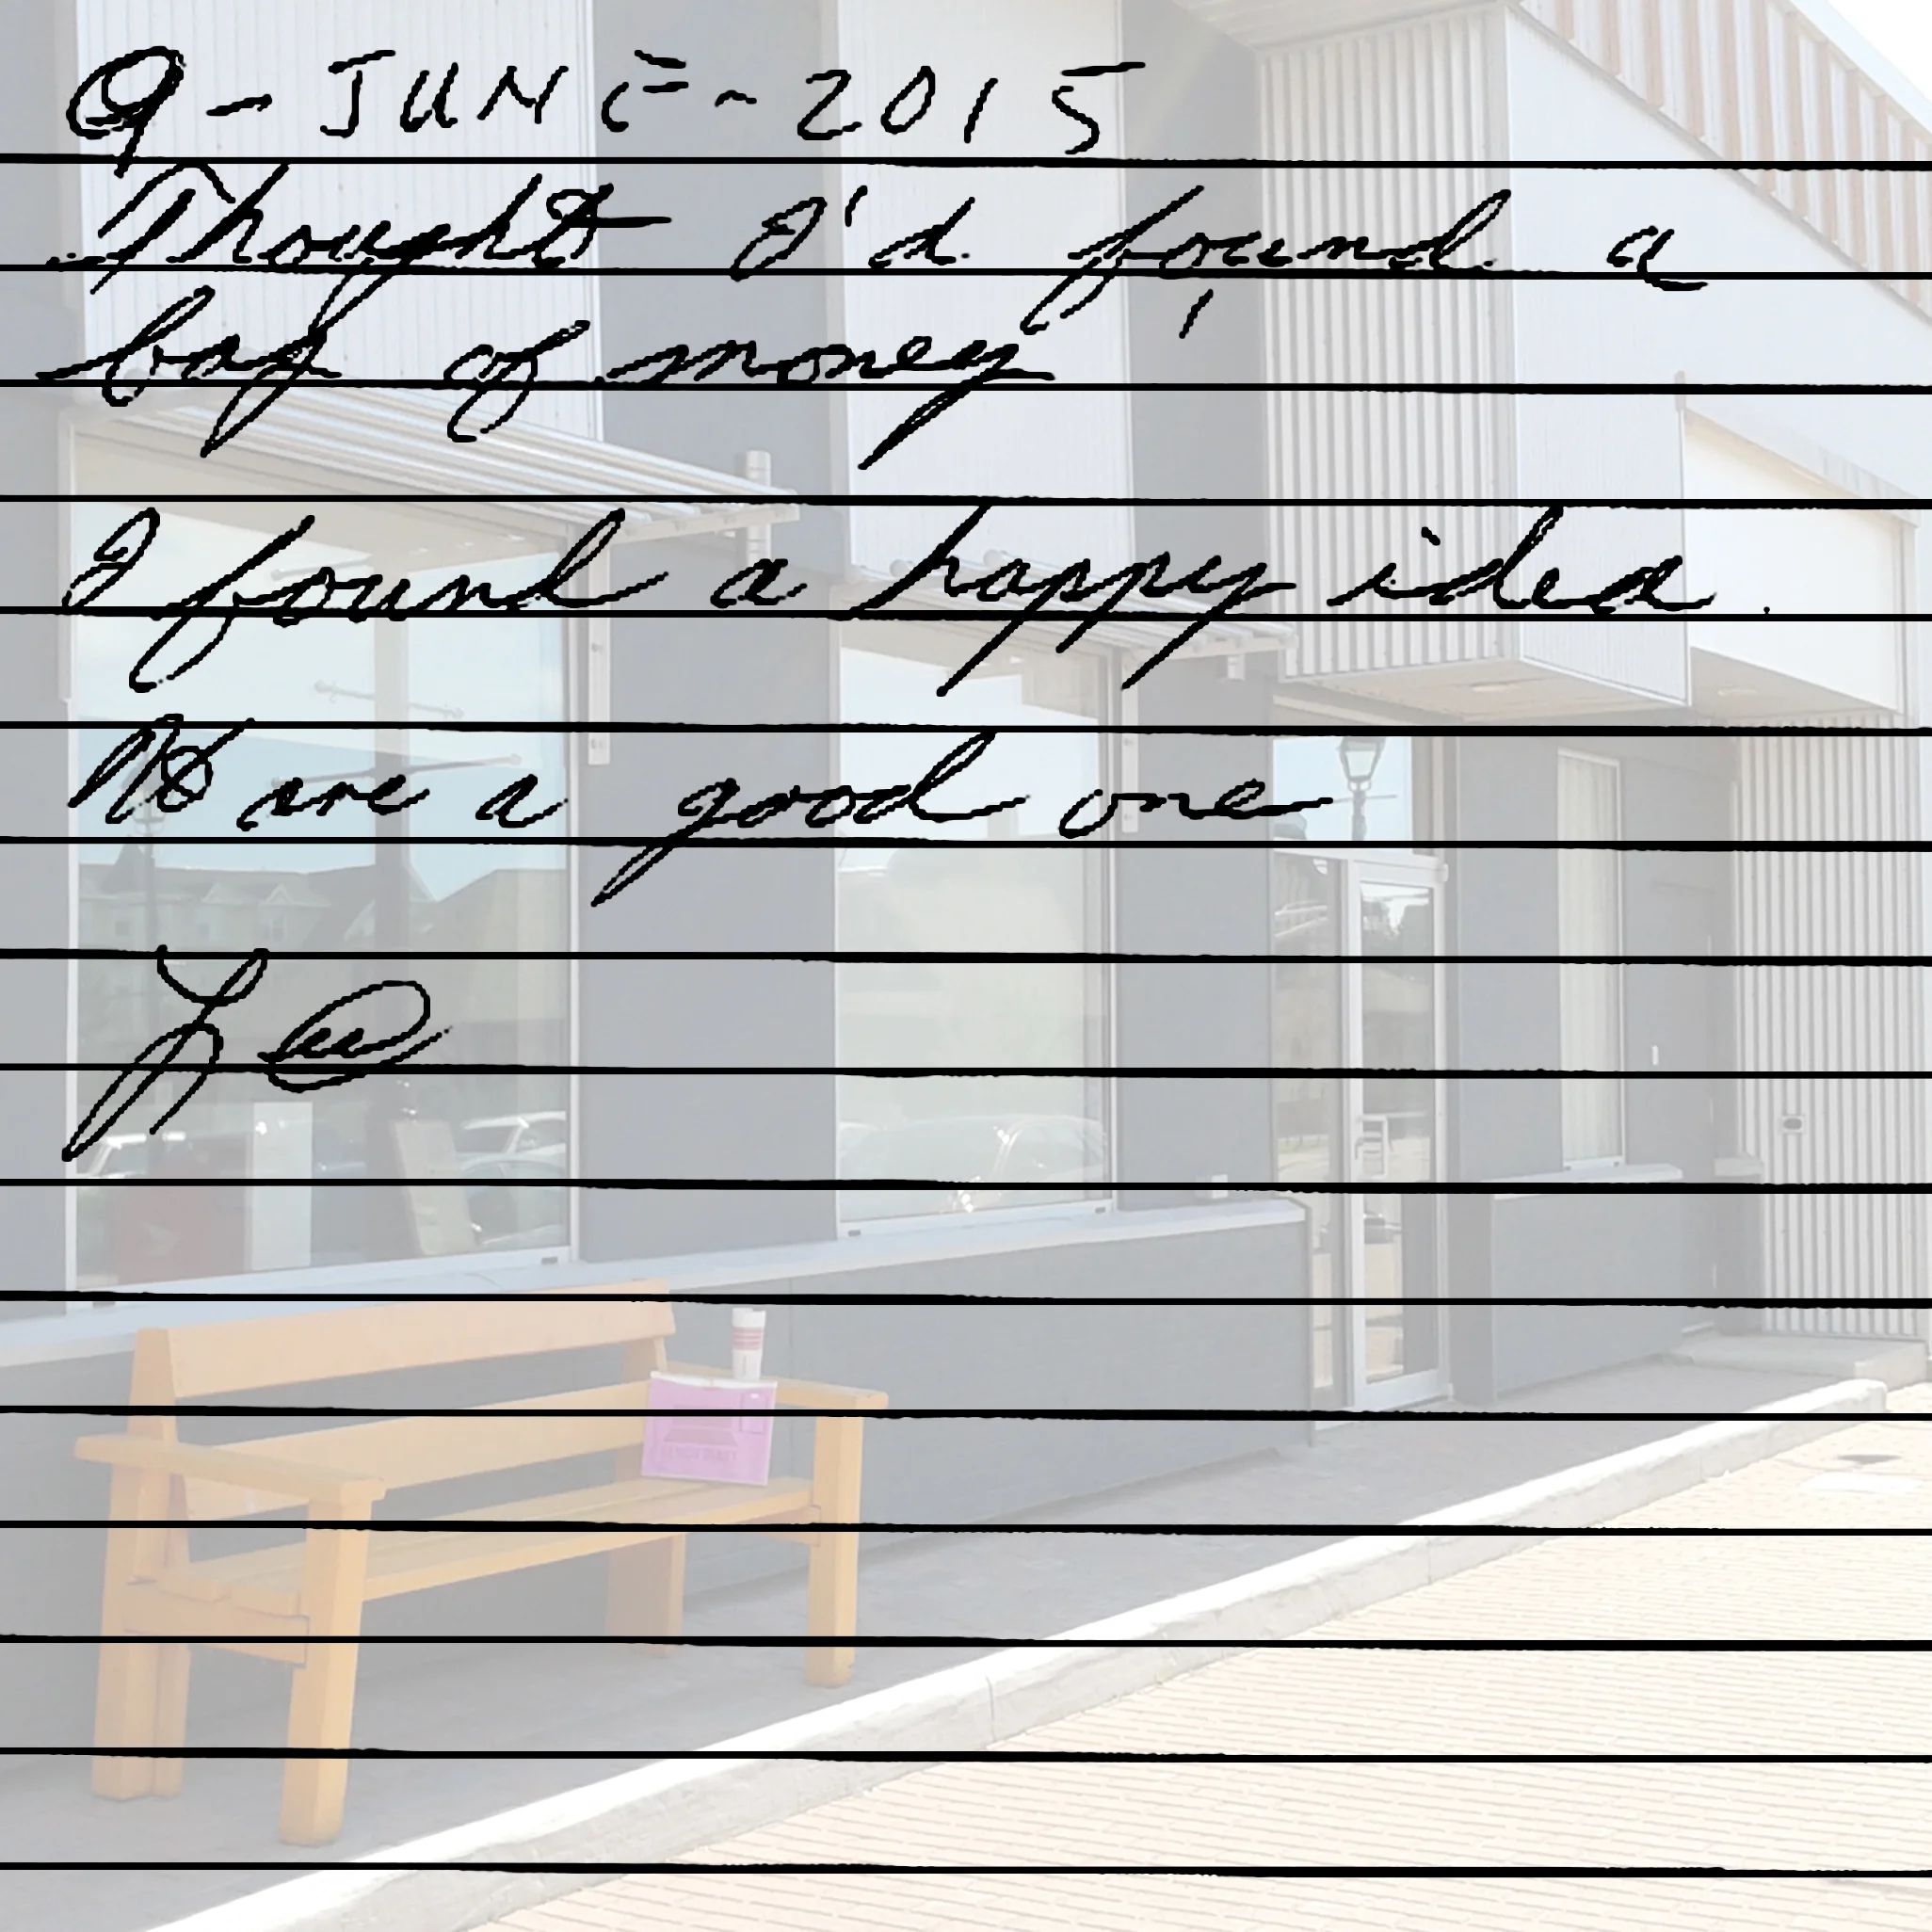 9-JUNE-2015
Thought I'd found a
bag of money
I found a happy idea.
are a good one